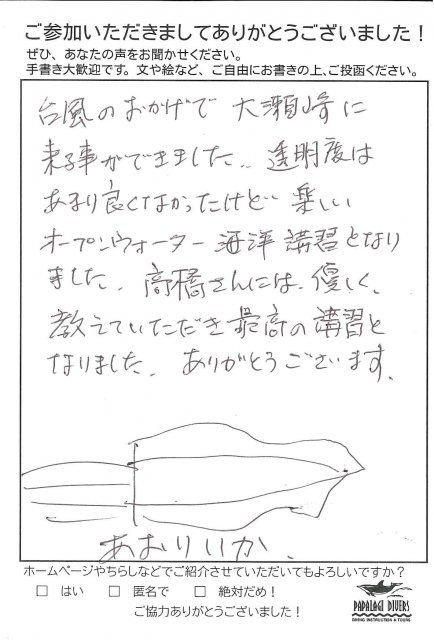 ご参加いただきましてありがとうございました！
ぜひ、あなたの声をお聞かせください。
手書き大歓迎です。文や絵など、ご自由にお書きの上、ご投函ください。
台風のおかげで 大瀬崎に
来る事ができました。透明度は
あまり良くなかったけど 楽しい
オープンウォーター 海洋講習となり
ました。高橋さんには、優しく、
教えていただき最高の講習と
なりました。ありがとうございます。
あおりいか、
ホームページやちらしなどでご紹介させていただいてもよろしいですか？
□ はい □ 匿名で □ 絶対だめ！
ご協力ありがとうございました！
PAPALAGI DIVERS
DIVING INSTRUCTION & TOURS